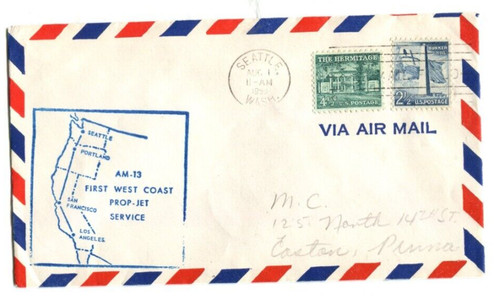 SEATTLE
AUG 1
11-AM
WASH.
THE HERMITAGE
4½¢ U.S. POSTAGE
BUNKER HILL
2½¢ U.S. POSTAGE
VIA AIR MAIL
SEATTLE
PORTLAND
SAN FRANCISCO
LOS ANGELES
AM-13
FIRST WEST COAST
PROP-JET
SERVICE
M.C.
125 North 14th ST.
Easton, Penna